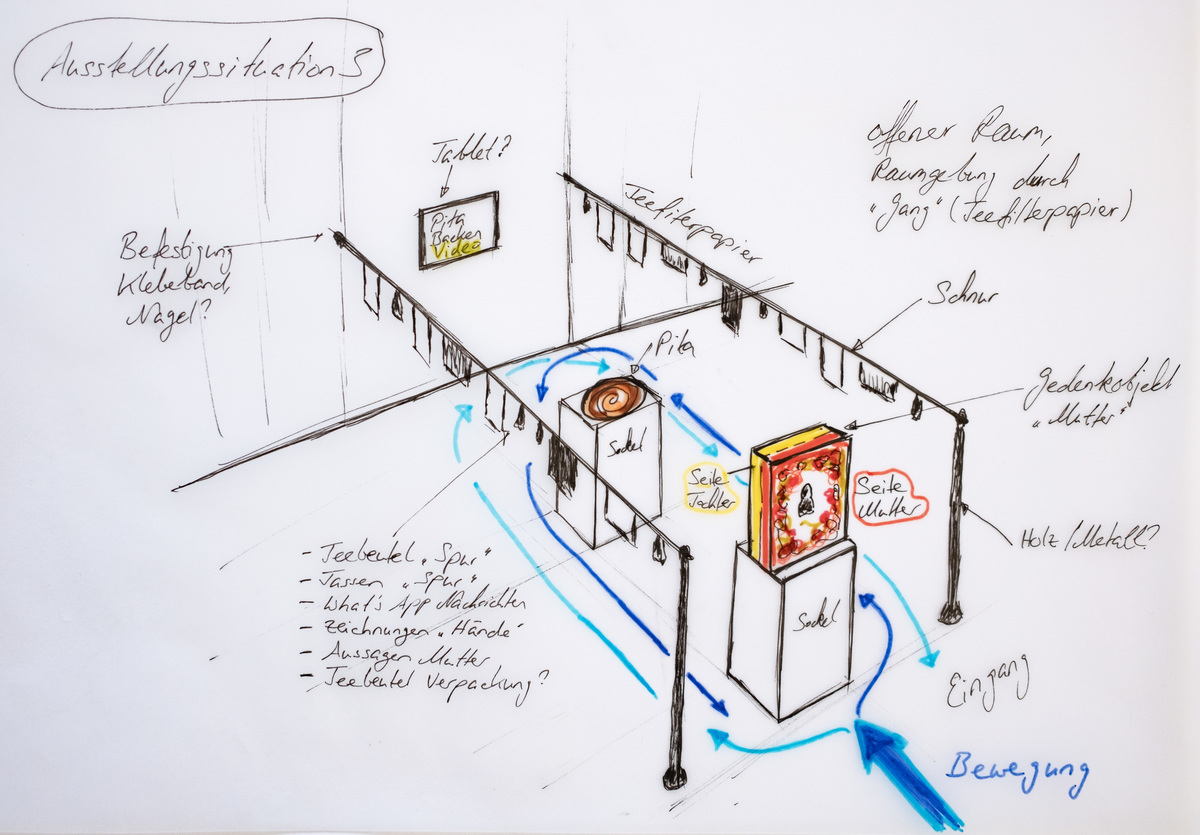 Ausstellungssituation 3
Tablet?
Pita
Backen
Video
Teefilterpapier
offener Raum,
Raumgebung durch
„Gang“ (Teefilterpapier)
Befestigung
Klebeband,
Nagel?
Schnur
Pita
Gedenkobjekt
„Mutter“
Sockel
Seite
Tochter
Seite
Mutter
Holz/Metall?
Sockel
- Teebeutel „Spur“
- Tassen „Spur“
- What's App Nachrichten
- Zeichnungen „Hände“
- Aussagen Mutter
- Teebeutel Verpackung?
Eingang
Bewegung